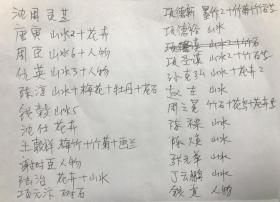 沈周 灵芝
唐寅 山水2+花卉
周臣 山水6+人物
仇英 山水3+人物
张 山水+梅花+牡丹+花石
钱榖 山水5
沈仕 花卉
王榖祥 梅竹+竹菊+画兰
谢时臣 人物
陆治 花卉+山水
项元汴 树石
项德新 墨竹2+竹菊竹石兰
项德裕 山水
项圣谟 山水2+竹石
孙克弘 山水+花卉2
赵左 山水
周之冕 竹石+花鸟+花卉
陈裸 山水
陈焕 山水
张元举 山水
丁云鹏 山水
钱贡 人物